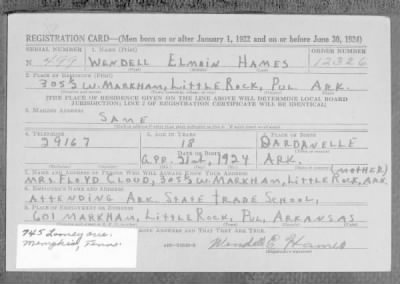 REGISTRATION CARD—(Men born on or after January 1, 1922 and on or before June 30, 1924)
SERIAL NUMBER 1. NAME (Print) ORDER NUMBER
N 499 WENDELL ELMOIN HAMES 12326
(First) (Middle) (Last)
2. PLACE OF RESIDENCE (Print)
305½ W. MARKHAM, LITTLE ROCK, PUL. ARK.
[THE PLACE OF RESIDENCE GIVEN ON THE LINE ABOVE WILL DETERMINE LOCAL BOARD
JURISDICTION; LINE 2 OF REGISTRATION CERTIFICATE WILL BE IDENTICAL]
3. MAILING ADDRESS
SAME
4. TELEPHONE 5. AGE IN YEARS 6. PLACE OF BIRTH
24167 18 DARDANELLE
DATE OF BIRTH
APR. 21st, 1924 ARK.
7. NAME AND ADDRESS OF PERSON WHO WILL ALWAYS KNOW YOUR ADDRESS (MOTHER)
MRS. FLOYD CLOUD, 305½ W. MARKHAM, LITTLE ROCK, ARK.
8. EMPLOYER'S NAME AND ADDRESS
ATTENDING ARK. STATE TRADE SCHOOL,
9. PLACE OF EMPLOYMENT OR BUSINESS
601 MARKHAM, LITTLE ROCK, PUL, ARKANSAS
ABOVE ANSWERS AND THAT THEY ARE TRUE.
745 Looney ave.
Memphis, Tenn.
Wendell E. Hames